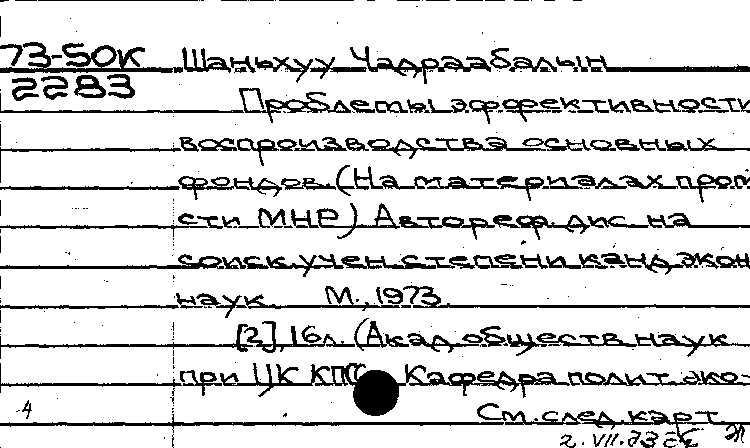 73-50К Шаньхуу Чадраабалын
2283
Проблемы эффективности
воспроизводства основных
фондов. (На материалах пром
сти МНР) Автореф. дис. на
соиск. учен. степени канд. экон
наук. М., 1973.
[2], 16л. (Акад. обществ. наук
при ЦК КПСС Кафедра полит. эко-
4 См. след. карт.
2.VII.73